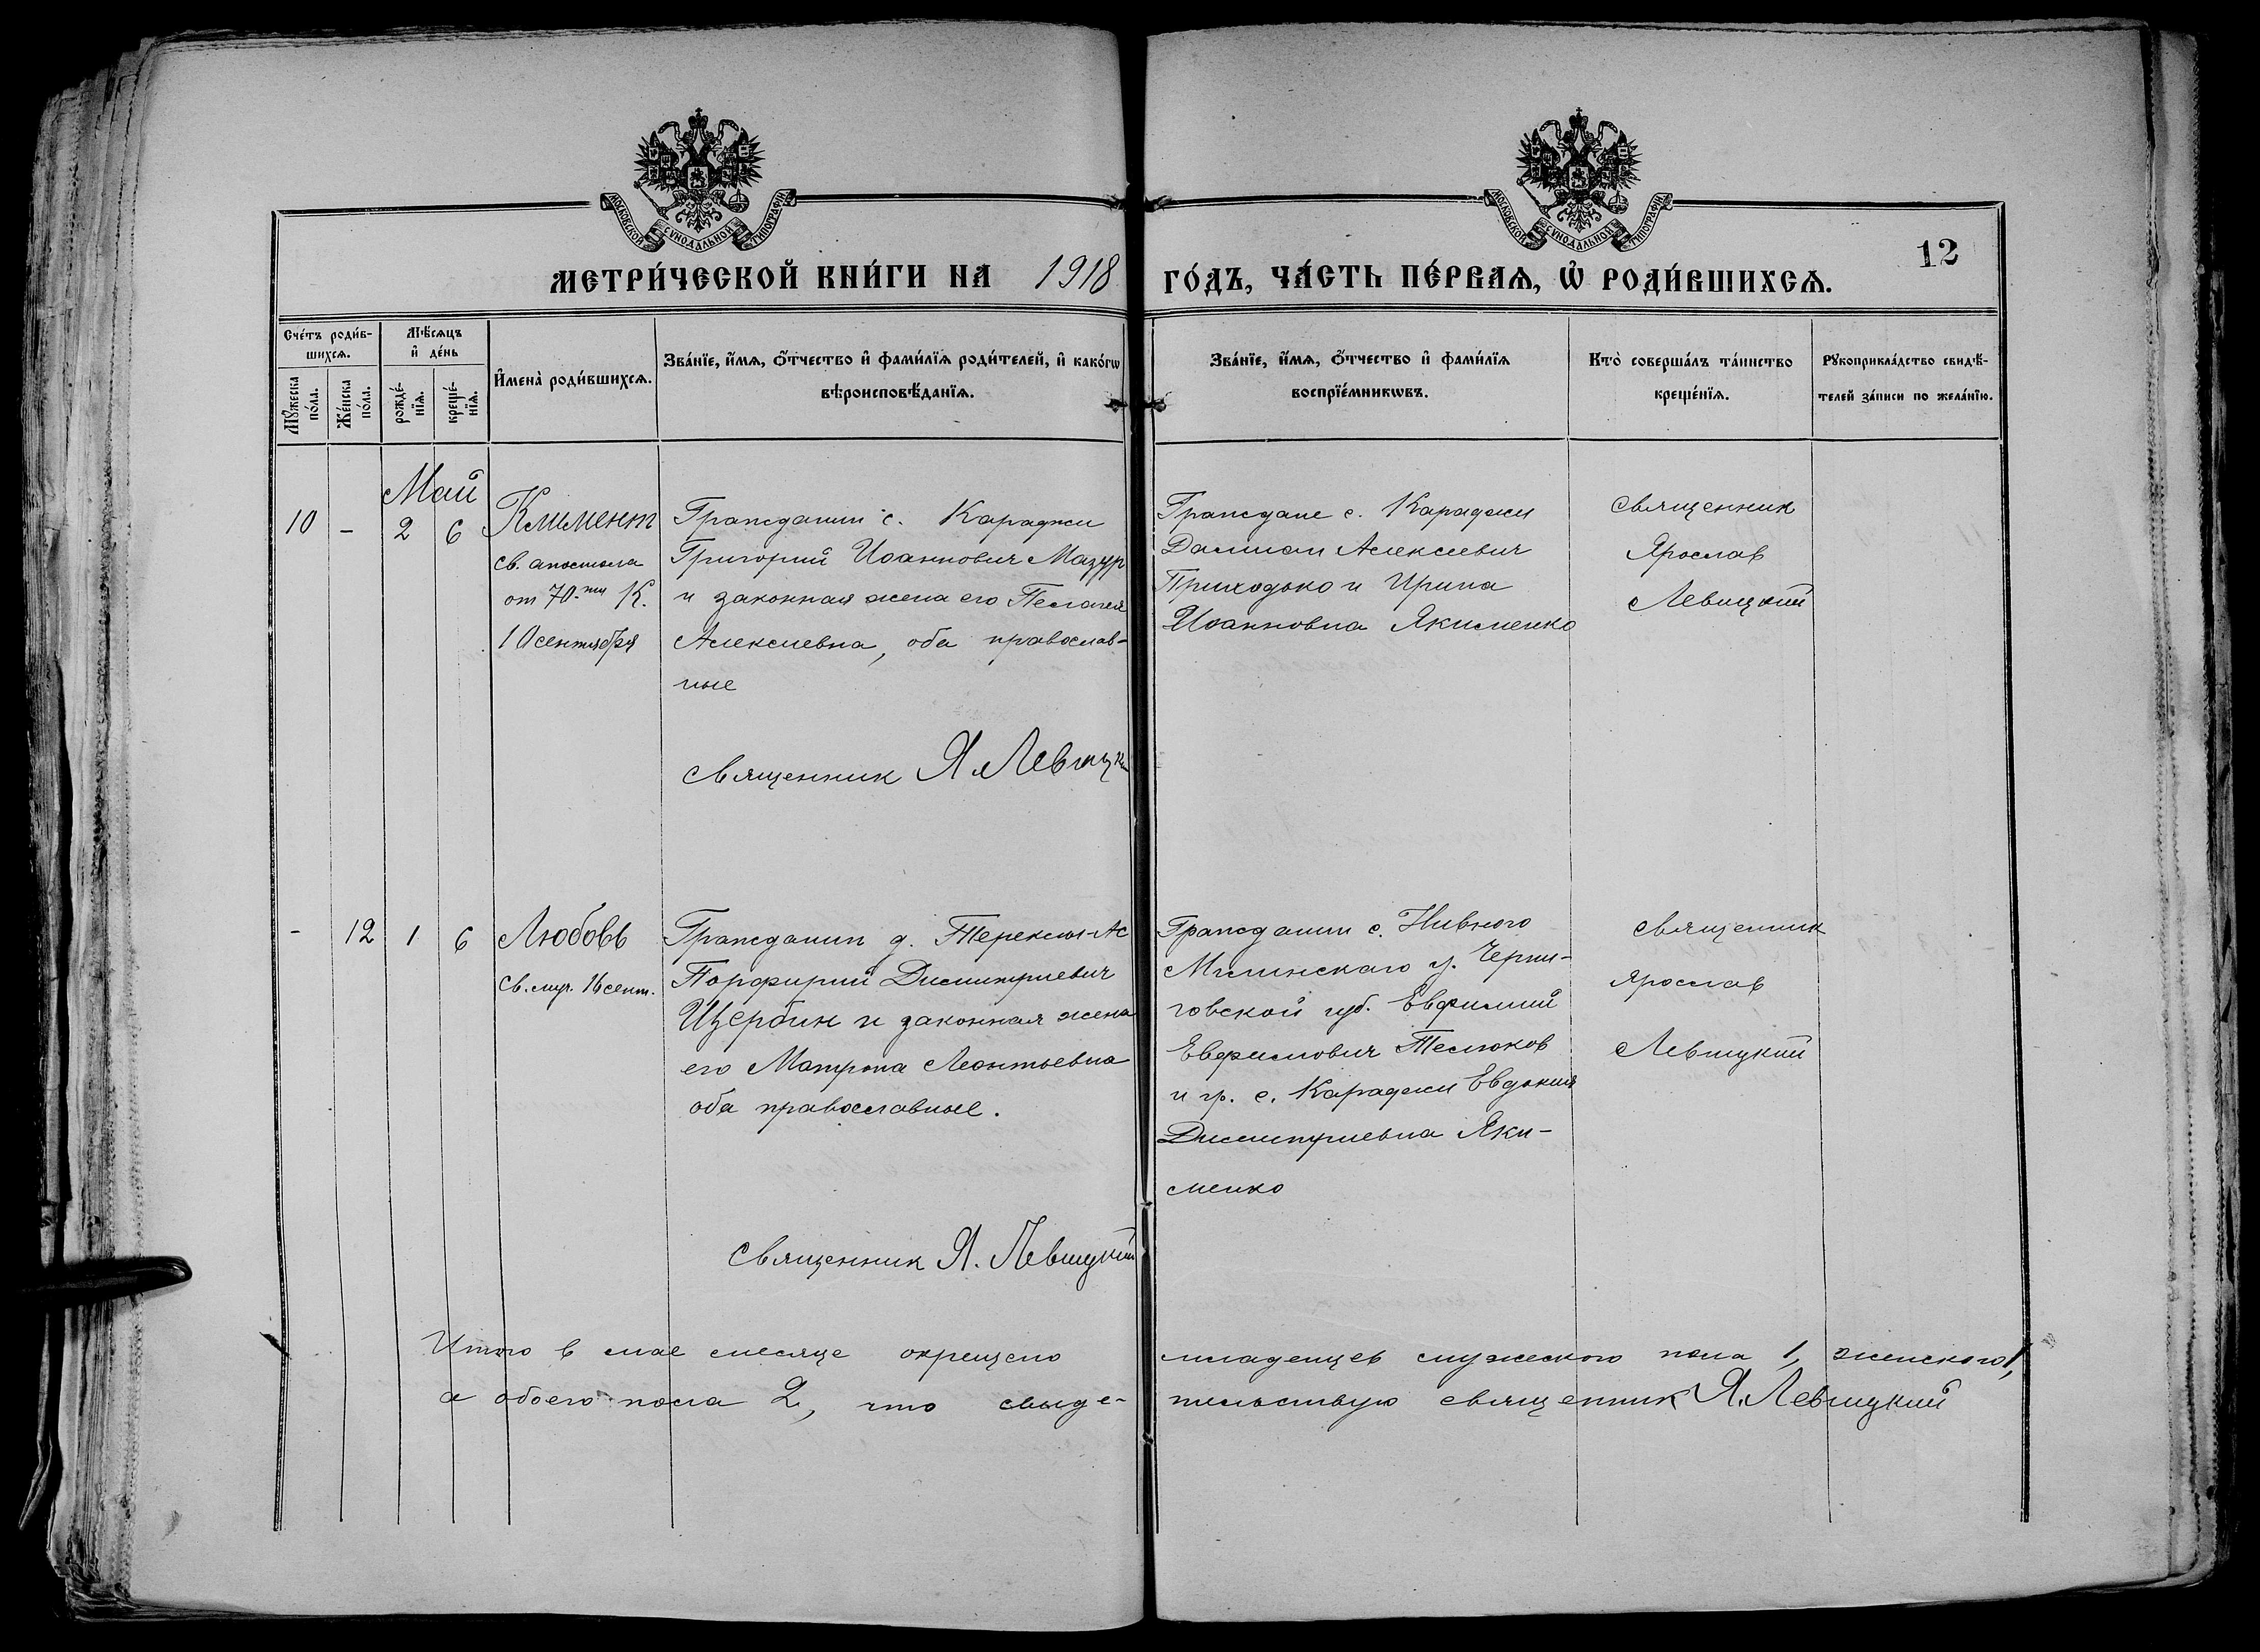 МОСКОВСКОЙ СѴНОДАЛЬНОЙ ТИПОГРАФІИ
МОСКОВСКОЙ СѴНОДАЛЬНОЙ ТИПОГРАФІИ
12
МЕТРИ́ЧЕСКОЙ КНИ́ГИ НА 1918 ГО́ДЪ, ЧА́СТЬ ПЕ́РВАѦ, Ѡ҆ РОДИ́ВШИХСѦ.
Сче́тъ роди́в-
шихсѧ.
Мꙋ́жеска
по́ла.
Же́нска
по́ла.
Мѣ́сѧцъ
и҆ де́нь
рожде́-
нїѧ.
креще́-
нїѧ.
И҆мена̀ роди́вшихсѧ.
Зва́нїе, и҆́мѧ, ѻ҆́тчество и҆ фами́лїѧ роди́телей, и҆ како́гѡ
вѣроисповѣ́данїѧ.
Зва́нїе, и҆́мѧ, ѻ҆́тчество и҆ фами́лїѧ
воспрїе́мникѡвъ.
Кто̀ соверша́лъ та́инство
креще́нїѧ.
Рꙋкоприкла́дство свидѣ́-
телей за́писи по жела́нїю.
Май
10 - 2 6
Климент
св. апостола
от 70-ти К.
10 сентября
Гражданин с. Караджи
Григорий Иоаннович Мазур
и законная жена его Пелагея
Алексиевна, оба православ-
ные
священник Я Левицкий
Граждане с. Караджи
Дамиан Алексиевич
Приходько и Ирина
Иоанновна Якименко
священник
Ярослав
Левицкий
- 12 1 6
Любовь
св. муч. 16 сент.
Гражданин д. Тереклы-Ас
Порфирий Димитриевич
Щербин и законная жена
его Матрона Леонтьевна
оба православные.
Священник Я. Левицкий
Гражданин с. Нивного
Мглинскаго у. Черни-
говской губ. Евфимий
Евфимович Телюков
и гр. с. Караджи Евдокия
Димитриевна Яки-
менко
священник
Ярослав
Левицкий
Итого в мае месяце окрещено младенцев мужеского пола 1, женского 1,
а обоего пола 2, что свиде- тельствую священник Я. Левицкий